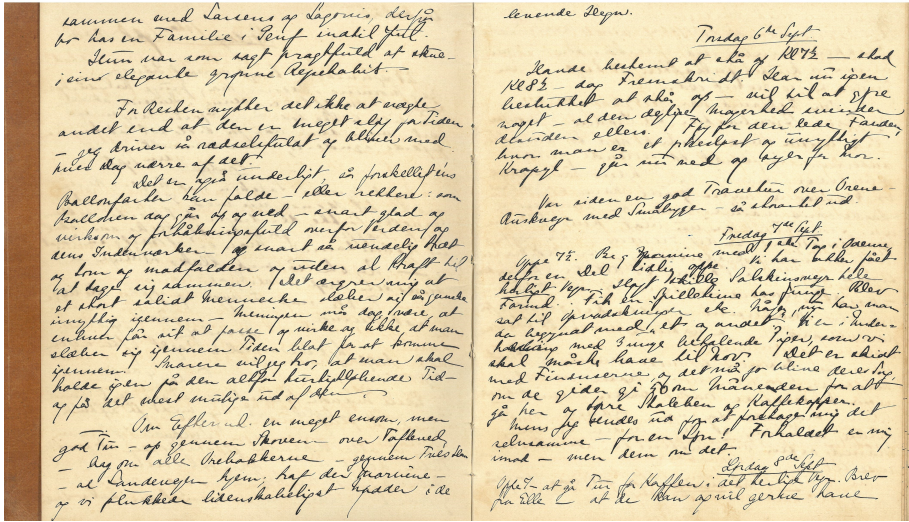 sammen med Larsens og Lagonis, derfor
bor hos en Familie i Genf indtil Jul.
Hun var som sagt pragtfuld at skue
i sine elegante grønne
For Resten nytter det ikke at nægte
andet end at den er meget sløj for Tiden
– jeg driver så rædselsfuldt og bliver med
hver Dag værre af det.
Det er også underligt, så forskelligt ens
Ballonfarter kan falde – eller rettere: som
Ballonen dog går op og ned – snart glad og
virksom og forhåbningsfuld overfor Verden og
dens Indenværken og snart så uendelig træt
og tom og modfalden og uden al Kraft til
at tage sig sammen. Det ærgrer mig at
et stort solidt Menneske slæber sig så ganske
unyttig igennem – Meningen må dog være, at
enhver får sit at passe og virke og ikke, at man
slæber sig igennem Tiden blot for at komme
igennem. Snarere vil jeg tro, at man skal
holde igen på den altfor hurtigløbende Tid –
og få det mest mulige ud af den.
Om Efterm. en meget ensom, men
god Tur – op gennem Skoven over
– og om alle Brebakkerne – gennem
– ad Landevejen hjem; traf der
og vi plukkede lidenskabeligt nødder i de
levende Hegn.
Torsdag 6te Sept
Havde bestemt at stå op Kl 7½ – stod
Kl 8½ – dog Fremskridt. Har nu igen
besluttet at stå op – vil til at gøre
noget – al den dejlige Magerhed svinder
desuden ellers. Fy for den lede Fanden,
hvor man er et pladsløst og unyttigt
Kræ – går nu ned og syer for Mor.
Var siden en god Travetur over
med – så
Fredag 7de Sept
Oppe 7½. Pr. g Mornine med 1ste Tog i Odense,
derfor en Del tidlig oppe. Vi har virkelig fået
herligt Vejr. Sløjt hele
Formd. Fik en Spilletime hos Junge. Blev
sat til etc. Nå, nu har man
da begyndt med et og andet. Vi er i Under-
handling med 3 unge Piger, som vi
skal måske have til Nov. Det er skidt
med Finanserne og det må jo blive deres Sag,
om de gider gi 60 om Måneden for at
gå her og lære Skaleben og Kaffekopper.
Mens jeg sendes ud for at foretage mig det
selvsamme – for en Løn! Forholdet er mig
imod – men dem om det.
Lørdag 8de Sept
Oppe 7 – at gå Tur før Kaffen i det herlige Vejr. Brev
fra Elle – at de kan og vil gerne have